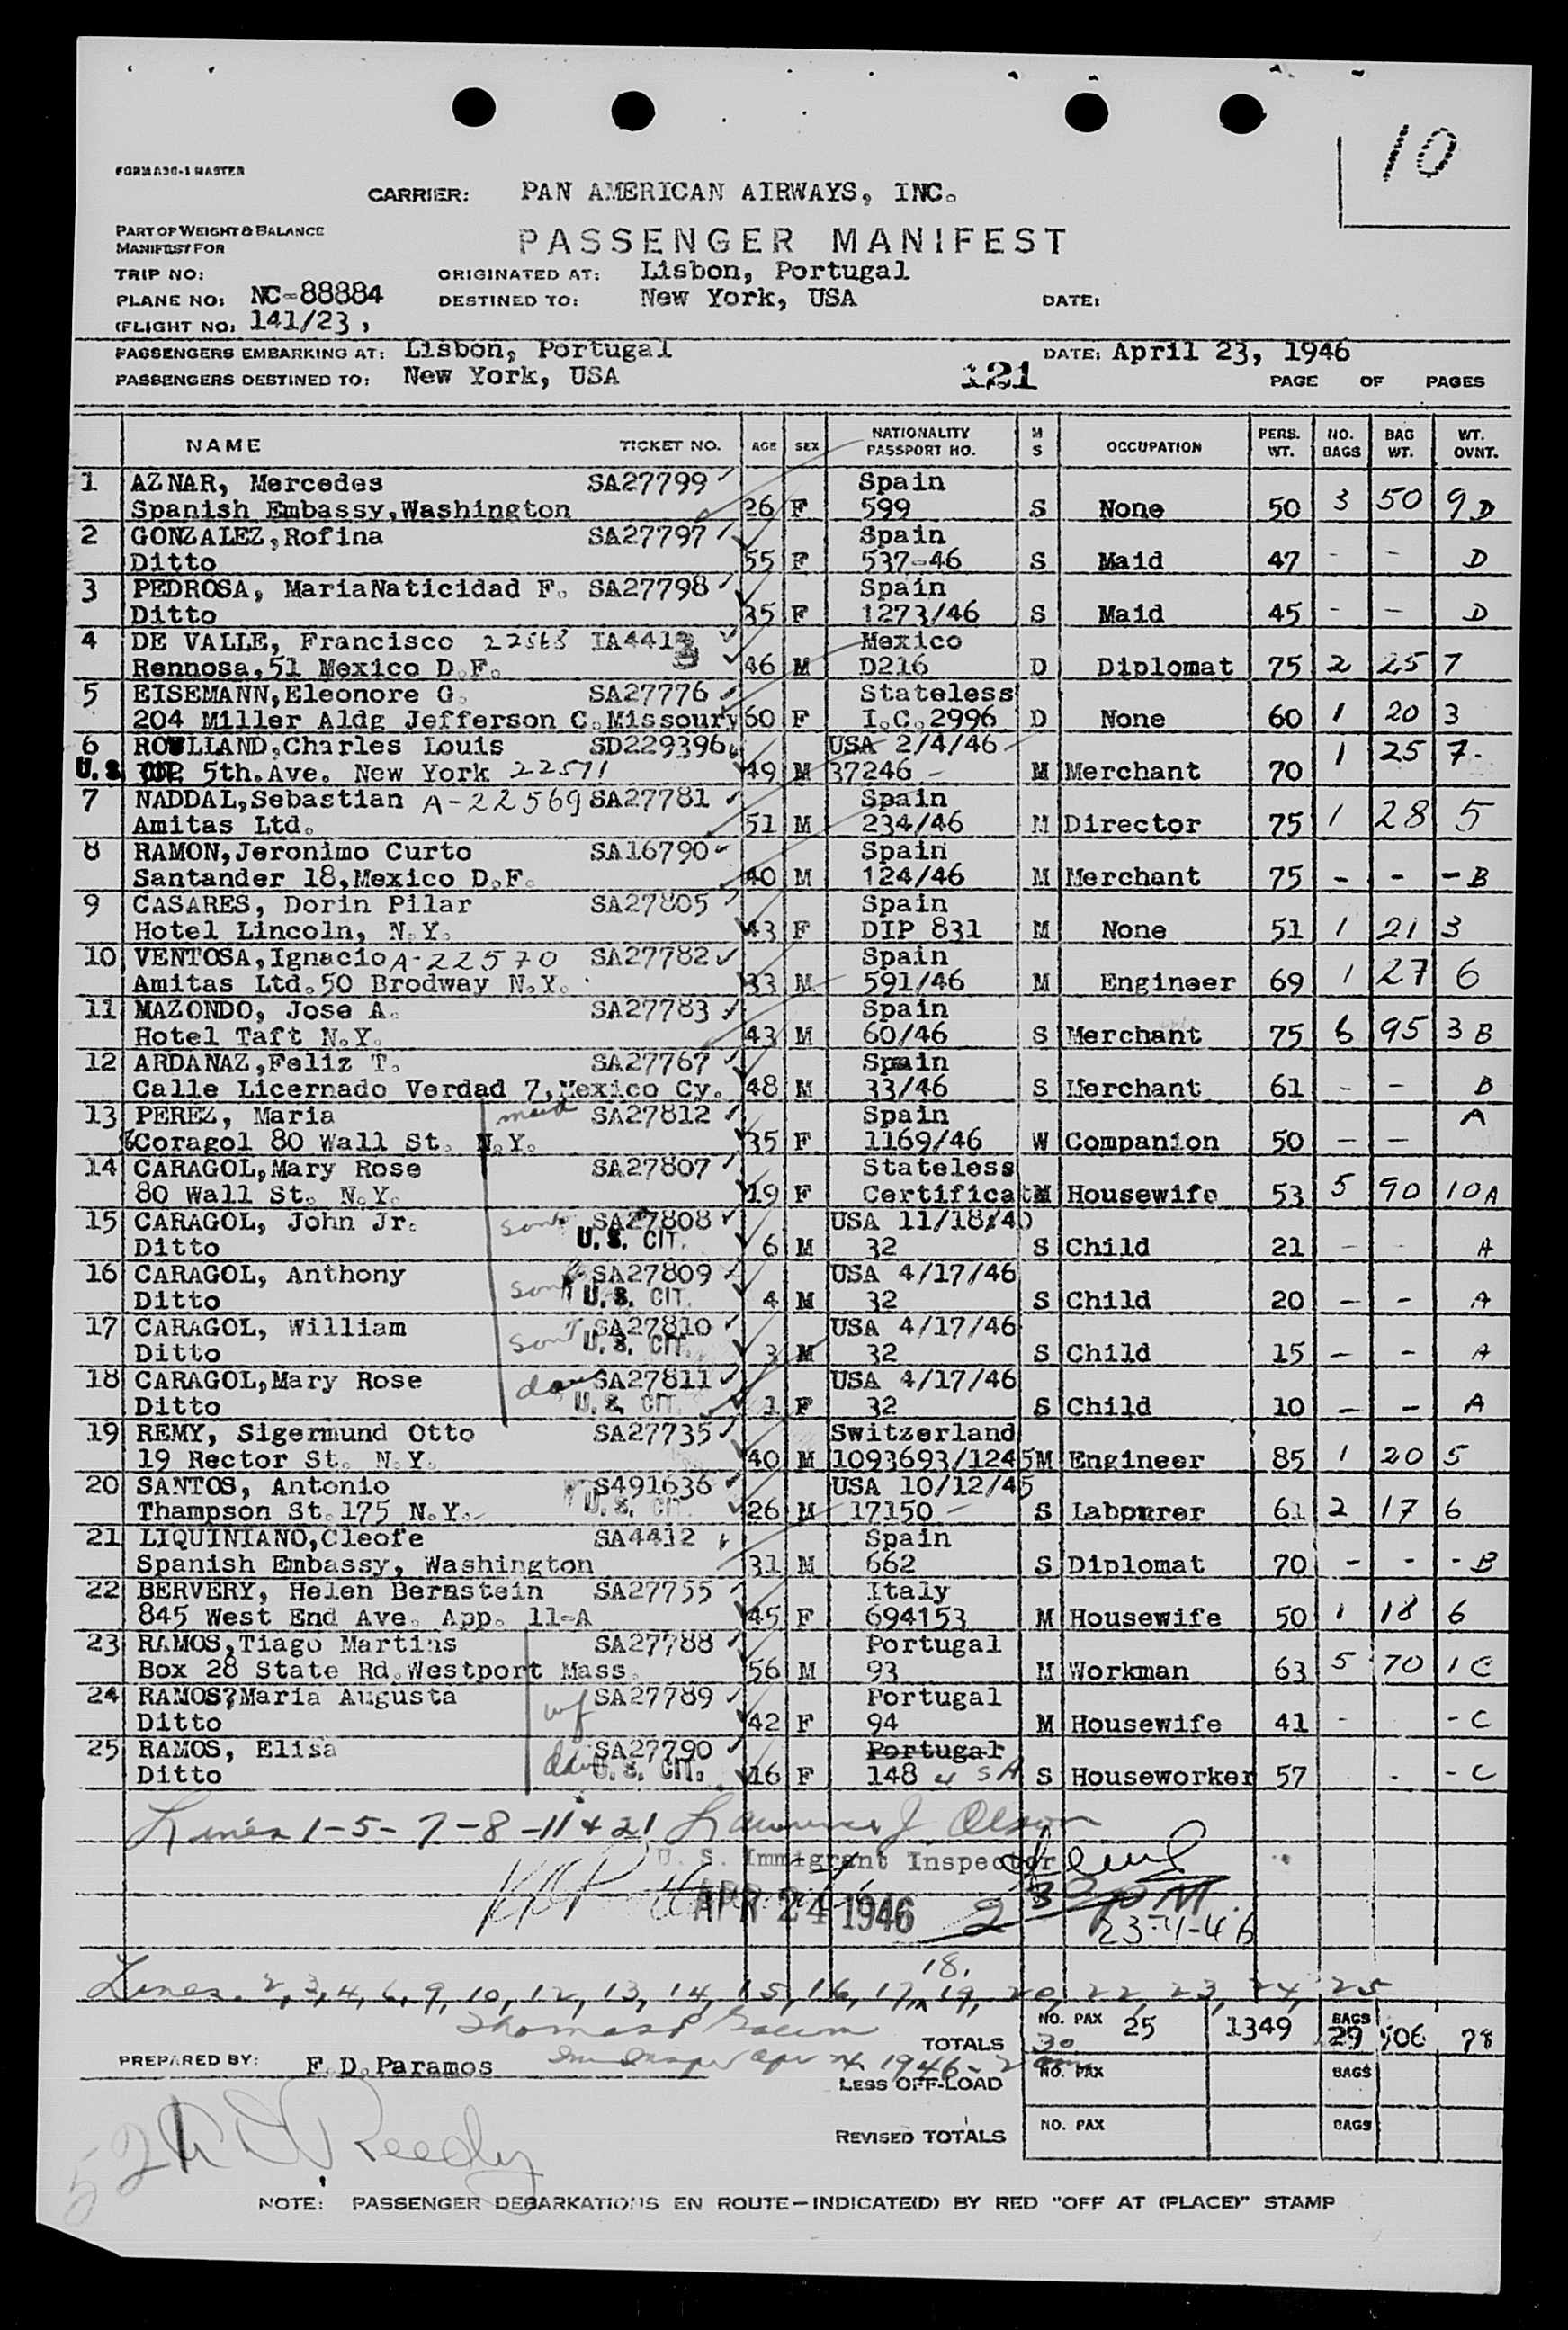 10
FORM A30-1 MASTER
CARRIER: PAN AMERICAN AIRWAYS, INC.
PART OF WEIGHT & BALANCE
MANIFEST FOR
PASSENGER MANIFEST
TRIP NO: ORIGINATED AT: Lisbon, Portugal
PLANE NO: NC-88884 DESTINED TO: New York, USA DATE:
(FLIGHT NO: 141/23,
PASSENGERS EMBARKING AT: Lisbon, Portugal DATE: April 23, 1946
PASSENGERS DESTINED TO: New York, USA 121 PAGE OF PAGES
NAME TICKET NO. AGE SEX NATIONALITY PASSPORT NO. M S OCCUPATION PERS. WT. NO. BAGS BAG WT. WT. OVNT.
1 AZNAR, Mercedes SA27799 Spain
Spanish Embassy,Washington 26 F 599 S None 50 3 50 9 D
2 GONZALEZ,Rofina SA27797 Spain
Ditto 55 F 537-46 S Maid 47 - - D
3 PEDROSA, MariaNaticidad F. SA27798 Spain
Ditto 35 F 1273/46 S Maid 45 - - D
4 DE VALLE, Francisco 22568 IA4413 Mexico
Rennosa,51 Mexico D.F. 46 M D216 D Diplomat 75 2 25 7
5 EISEMANN,Eleonore G. SA27776 Stateless
204 Miller Aldg Jefferson C.Missoury 60 F I.C.2996 D None 60 1 20 3
6 ROLLAND,Charles Louis SD229396 USA 2/4/46
U.S. 5th.Ave. New York 22571 49 M 37246 - M Merchant 70 1 25 7-
7 NADDAL,Sebastian A-22569 SA27781 Spain
Amitas Ltd. 51 M 234/46 M Director 75 1 28 5
8 RAMON,Jeronimo Curto SA16790 Spain
Santander 18,Mexico D.F. 40 M 124/46 M Merchant 75 - - - B
9 CASARES, Dorin Pilar SA27805 Spain
Hotel Lincoln, N.Y. 43 F DIP 831 M None 51 1 21 3
10 VENTOSA,Ignacio A-22570 SA27782 Spain
Amitas Ltd.50 Brodway N.Y. 33 M 591/46 M Engineer 69 1 27 6
11 MAZONDO, Jose A. SA27783 Spain
Hotel Taft N.Y. 43 M 60/46 S Merchant 75 6 95 3 B
12 ARDANAZ,Feliz T. SA27767 Spain
Calle Licernado Verdad 7,Mexico Cy. 48 M 33/46 S Merchant 61 - - B
13 PEREZ, Maria maid SA27812 Spain A
Coragol 80 Wall St. N.Y. 35 F 1169/46 W Companion 50 - -
14 CARAGOL,Mary Rose SA27807 Stateless
80 Wall St. N.Y. 19 F Certificat M Housewife 53 5 90 10 A
15 CARAGOL, John Jr. son SA27808 USA 11/18/40
Ditto U.S. CIT. 6 M 32 S Child 21 - - A
16 CARAGOL, Anthony SA27809 USA 4/17/46
Ditto son U.S. CIT. 4 M 32 S Child 20 - - A
17 CARAGOL, William SA27810 USA 4/17/46
Ditto son U.S. CIT. 3 M 32 S Child 15 - - A
18 CARAGOL,Mary Rose dau SA27811 USA 4/17/46
Ditto U.S. CIT. 1 F 32 S Child 10 - - A
19 REMY, Sigermund Otto SA27735 Switzerland
19 Rector St. N.Y. 40 M 1093693/1245 M Engineer 85 1 20 5
20 SANTOS, Antonio S491636 USA 10/12/45
Thampson St.175 N.Y. U.S. CIT 26 M 17150 - S Labourer 61 2 17 6
21 LIQUINIANO,Cleofe SA4412 Spain
Spanish Embassy, Washington 31 M 662 S Diplomat 70 - - - B
22 BERVERY, Helen Bernstein SA27755 Italy
845 West End Ave. App. 11-A 45 F 694153 M Housewife 50 1 18 6
23 RAMOS,Tiago Martins SA27788 Portugal
Box 28 State Rd.Westport Mass. 56 M 93 M Workman 63 5 70 1 C
24 RAMOS?Maria Augusta SA27789 Portugal
Ditto wf 42 F 94 M Housewife 41 - - C
25 RAMOS, Elisa SA27790 Portugal
Ditto dau U.S. CIT. 16 F 148 U S A S Houseworker 57 - C
Lines 1-5-7-8-11 & 21 Lawrence J. Olson
U. S. Immigrant Inspector
APR 24 1946 2 30 PM
23-4-46
18.
Lines. 2, 3, 4, 6, 9, 10, 12, 13, 14, 15, 16, 17, 19, 20, 22, 23, 24, 25
TOTALS NO. PAX 25 1349 BAGS 29 606 78
PREPARED BY: F.D.Paramos
LESS OFF-LOAD NO. PAX BAGS
REVISED TOTALS NO. PAX BAGS
52 Reedy
NOTE: PASSENGER DEBARKATIONS EN ROUTE-INDICATE(D) BY RED "OFF AT (PLACE)" STAMP